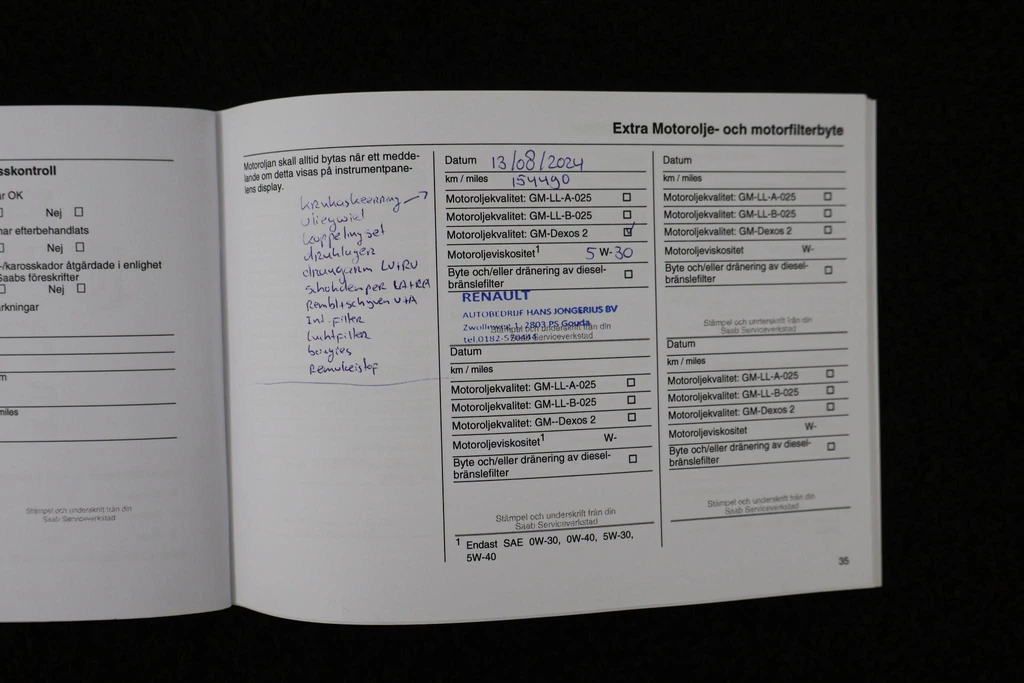 sskontroll
ir OK
Nej
nar efterbehandlats
Nej
-/karosskador åtgärdade i enlighet
Saabs föreskrifter
Nej
rkningar
m
miles
Stämpel och underskrift från din
Saab Serviceverkstad
Extra Motorolje- och motorfilterbyte
Motoroljan skall alltid bytas när ett medde-
lande om detta visas på instrumentpane-
lens display.
vliegwiel
koppeling set
druklagers
draagarm LV+RV
schokdemper LA+RA
Int. filter
Luchtfilter
bougies
Remvloeistof
Datum 13/08/2024
km / miles 154490
Motoroljekvalitet: GM-LL-A-025
Motoroljekvalitet: GM-LL-B-025
Motoroljekvalitet: GM-Dexos 2
Motoroljeviskositet1 5 W-30
Byte och/eller dränering av diesel-
bränslefilter
RENAULT
AUTOBEDRIJF HANS JONGERIUS BV
Zwolleweg 1, 2803 PS Gouda
Stämpel och underskrift från din
tel.0182-
Saab Serviceverkstad
Datum
km / miles
Motoroljekvalitet: GM-LL-A-025
Motoroljekvalitet: GM-LL-B-025
Motoroljekvalitet: GM--Dexos 2
Motoroljeviskositet1 W-
Byte och/eller dränering av diesel-
bränslefilter
Stämpel och underskrift från din
Saab Serviceverkstad
1 Endast SAE 0W-30, 0W-40, 5W-30,
5W-40
Datum
km / miles
Motoroljekvalitet: GM-LL-A-025
Motoroljekvalitet: GM-LL-B-025
Motoroljekvalitet: GM-Dexos 2
Motoroljeviskositet W-
Byte och/eller dränering av diesel-
bränslefilter
Stämpel och underskrift från din
Saab Serviceverkstad
Datum
km / miles
Motoroljekvalitet: GM-LL-A-025
Motoroljekvalitet: GM-LL-B-025
Motoroljekvalitet: GM-Dexos 2
Motoroljeviskositet W-
Byte och/eller dränering av diesel-
bränslefilter
Stämpel och underskrift från din
Saab Serviceverkstad
35